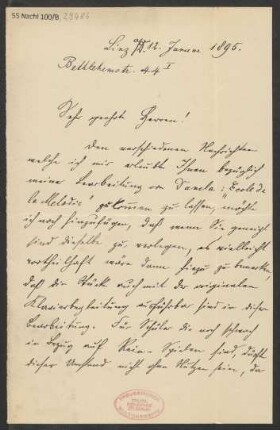 55 Nachl 100/B,
Linz a/D 12. Januar 1895.
Bethlehemstr. 44 I
Sehr geehrte Herren!
Den verschiedenen Nachrichten
welche ich mir erlaubte Ihnen bezüglich
meiner Bearbeitung von Dancla: "Ecole de
la Melodie" zukommen zu lassen, möchte
ich noch hinzufügen, daß wenn Sie geneigt
sind dieselbe zu verlegen, es vielleicht
vortheilhaft wäre dann hiezu zu bemerken,
daß die Stücke auch mit der originalen
Klavierbegleitung aufführbar sind in dieser
Bearbeitung. Für Schüler die noch schwach
in Bezug auf Rein-Spielen sind, dürfte
dieser Umstand nicht ohne Nutzen sein, da